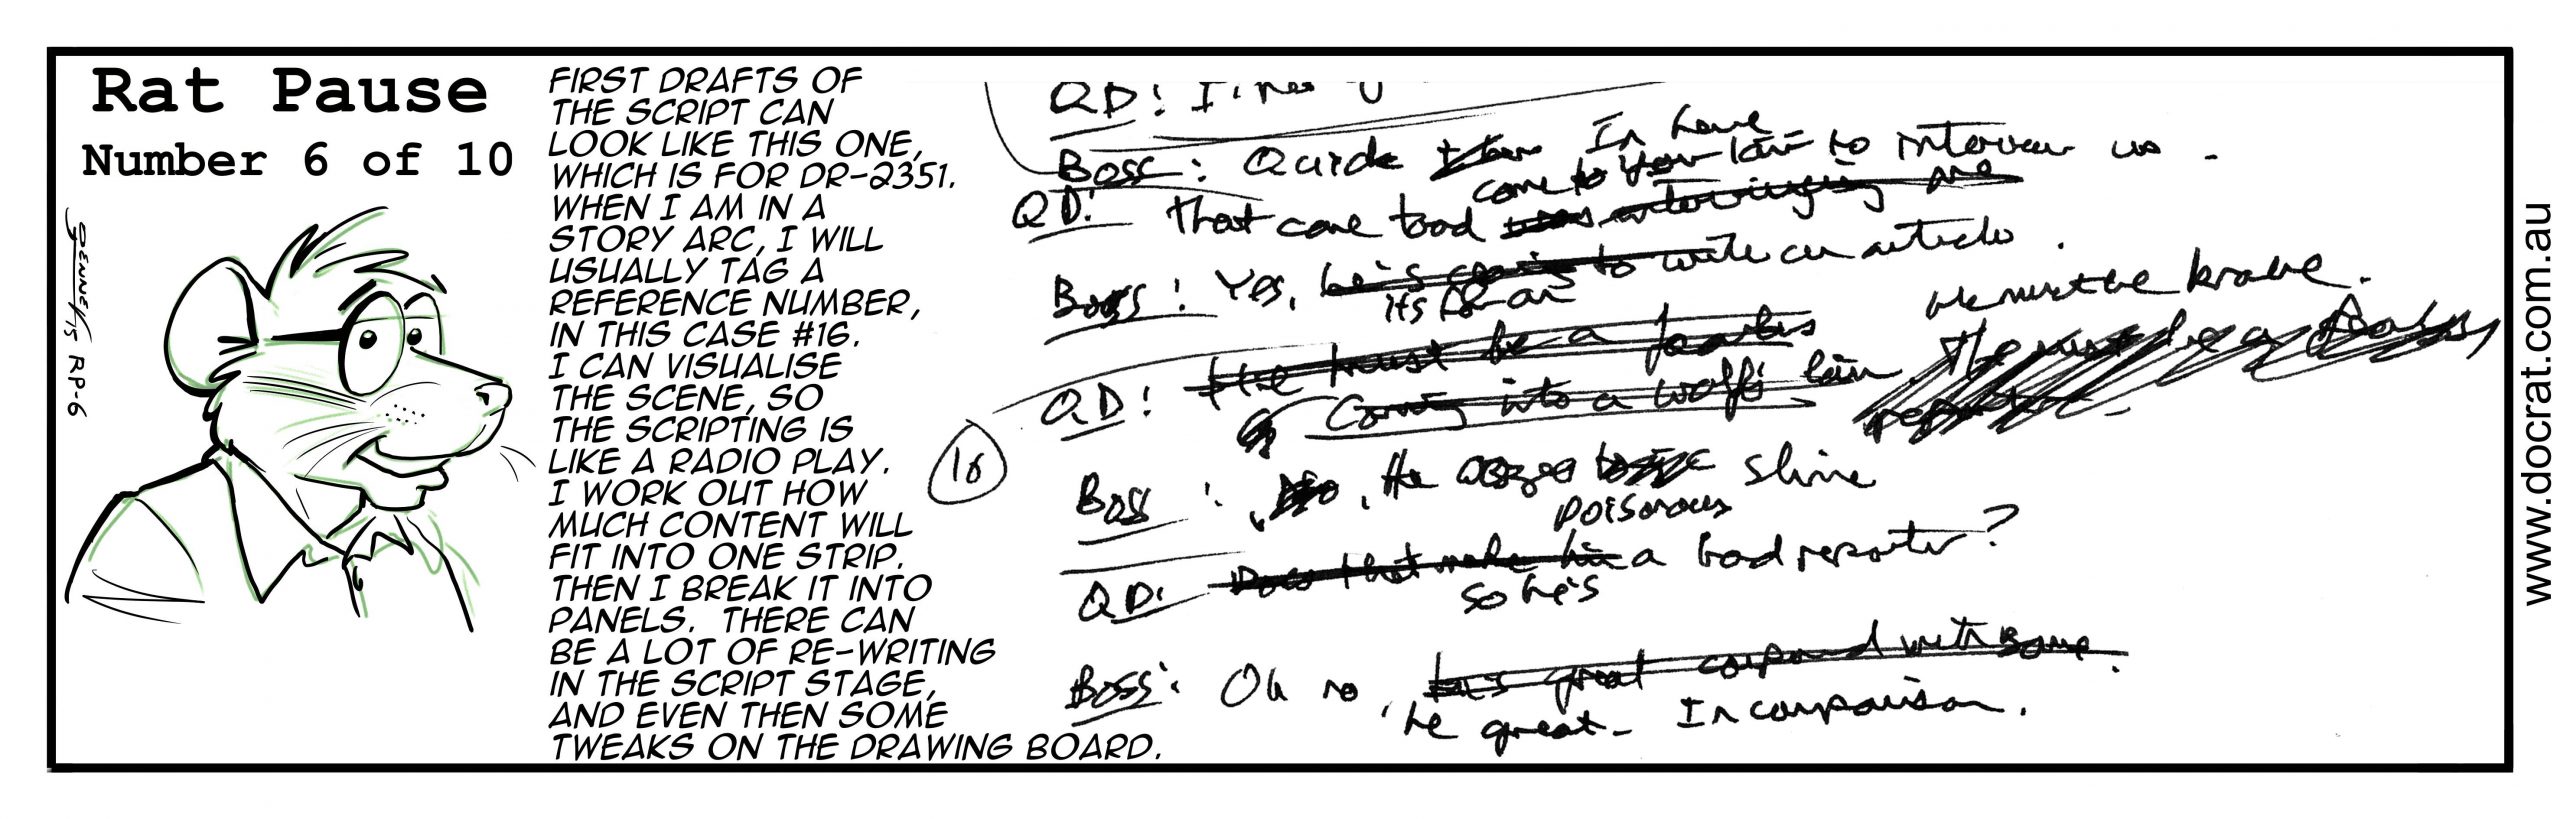 Rat Pause
Number 6 of 10
JENNER 15 RP-6
FIRST DRAFTS OF
THE SCRIPT CAN
LOOK LIKE THIS ONE,
WHICH IS FOR DR-2351.
WHEN I AM IN A
STORY ARC, I WILL
USUALLY TAG A
REFERENCE NUMBER,
IN THIS CASE #16.
I CAN VISUALISE
THE SCENE, SO
THE SCRIPTING IS
LIKE A RADIO PLAY.
I WORK OUT HOW
MUCH CONTENT WILL
FIT INTO ONE STRIP.
THEN I BREAK IT INTO
PANELS. THERE CAN
BE A LOT OF RE-WRITING
IN THE SCRIPT STAGE,
AND EVEN THEN SOME
TWEAKS ON THE DRAWING BOARD.
QD:
Boss: Quick to interview us.
come to your lair
QD: That cane toad
Boss: Yes, he's going to write an article.
its for an
He must be brave.
QD: He must be a fearless
Coming into a wolf's lair.
16
Boss: , He slime
poisonous
QD: Does that make him a bad reporter?
so he's
Boss: Oh no, he's great compared with some.
he great - In comparison.
www.docrat.com.au